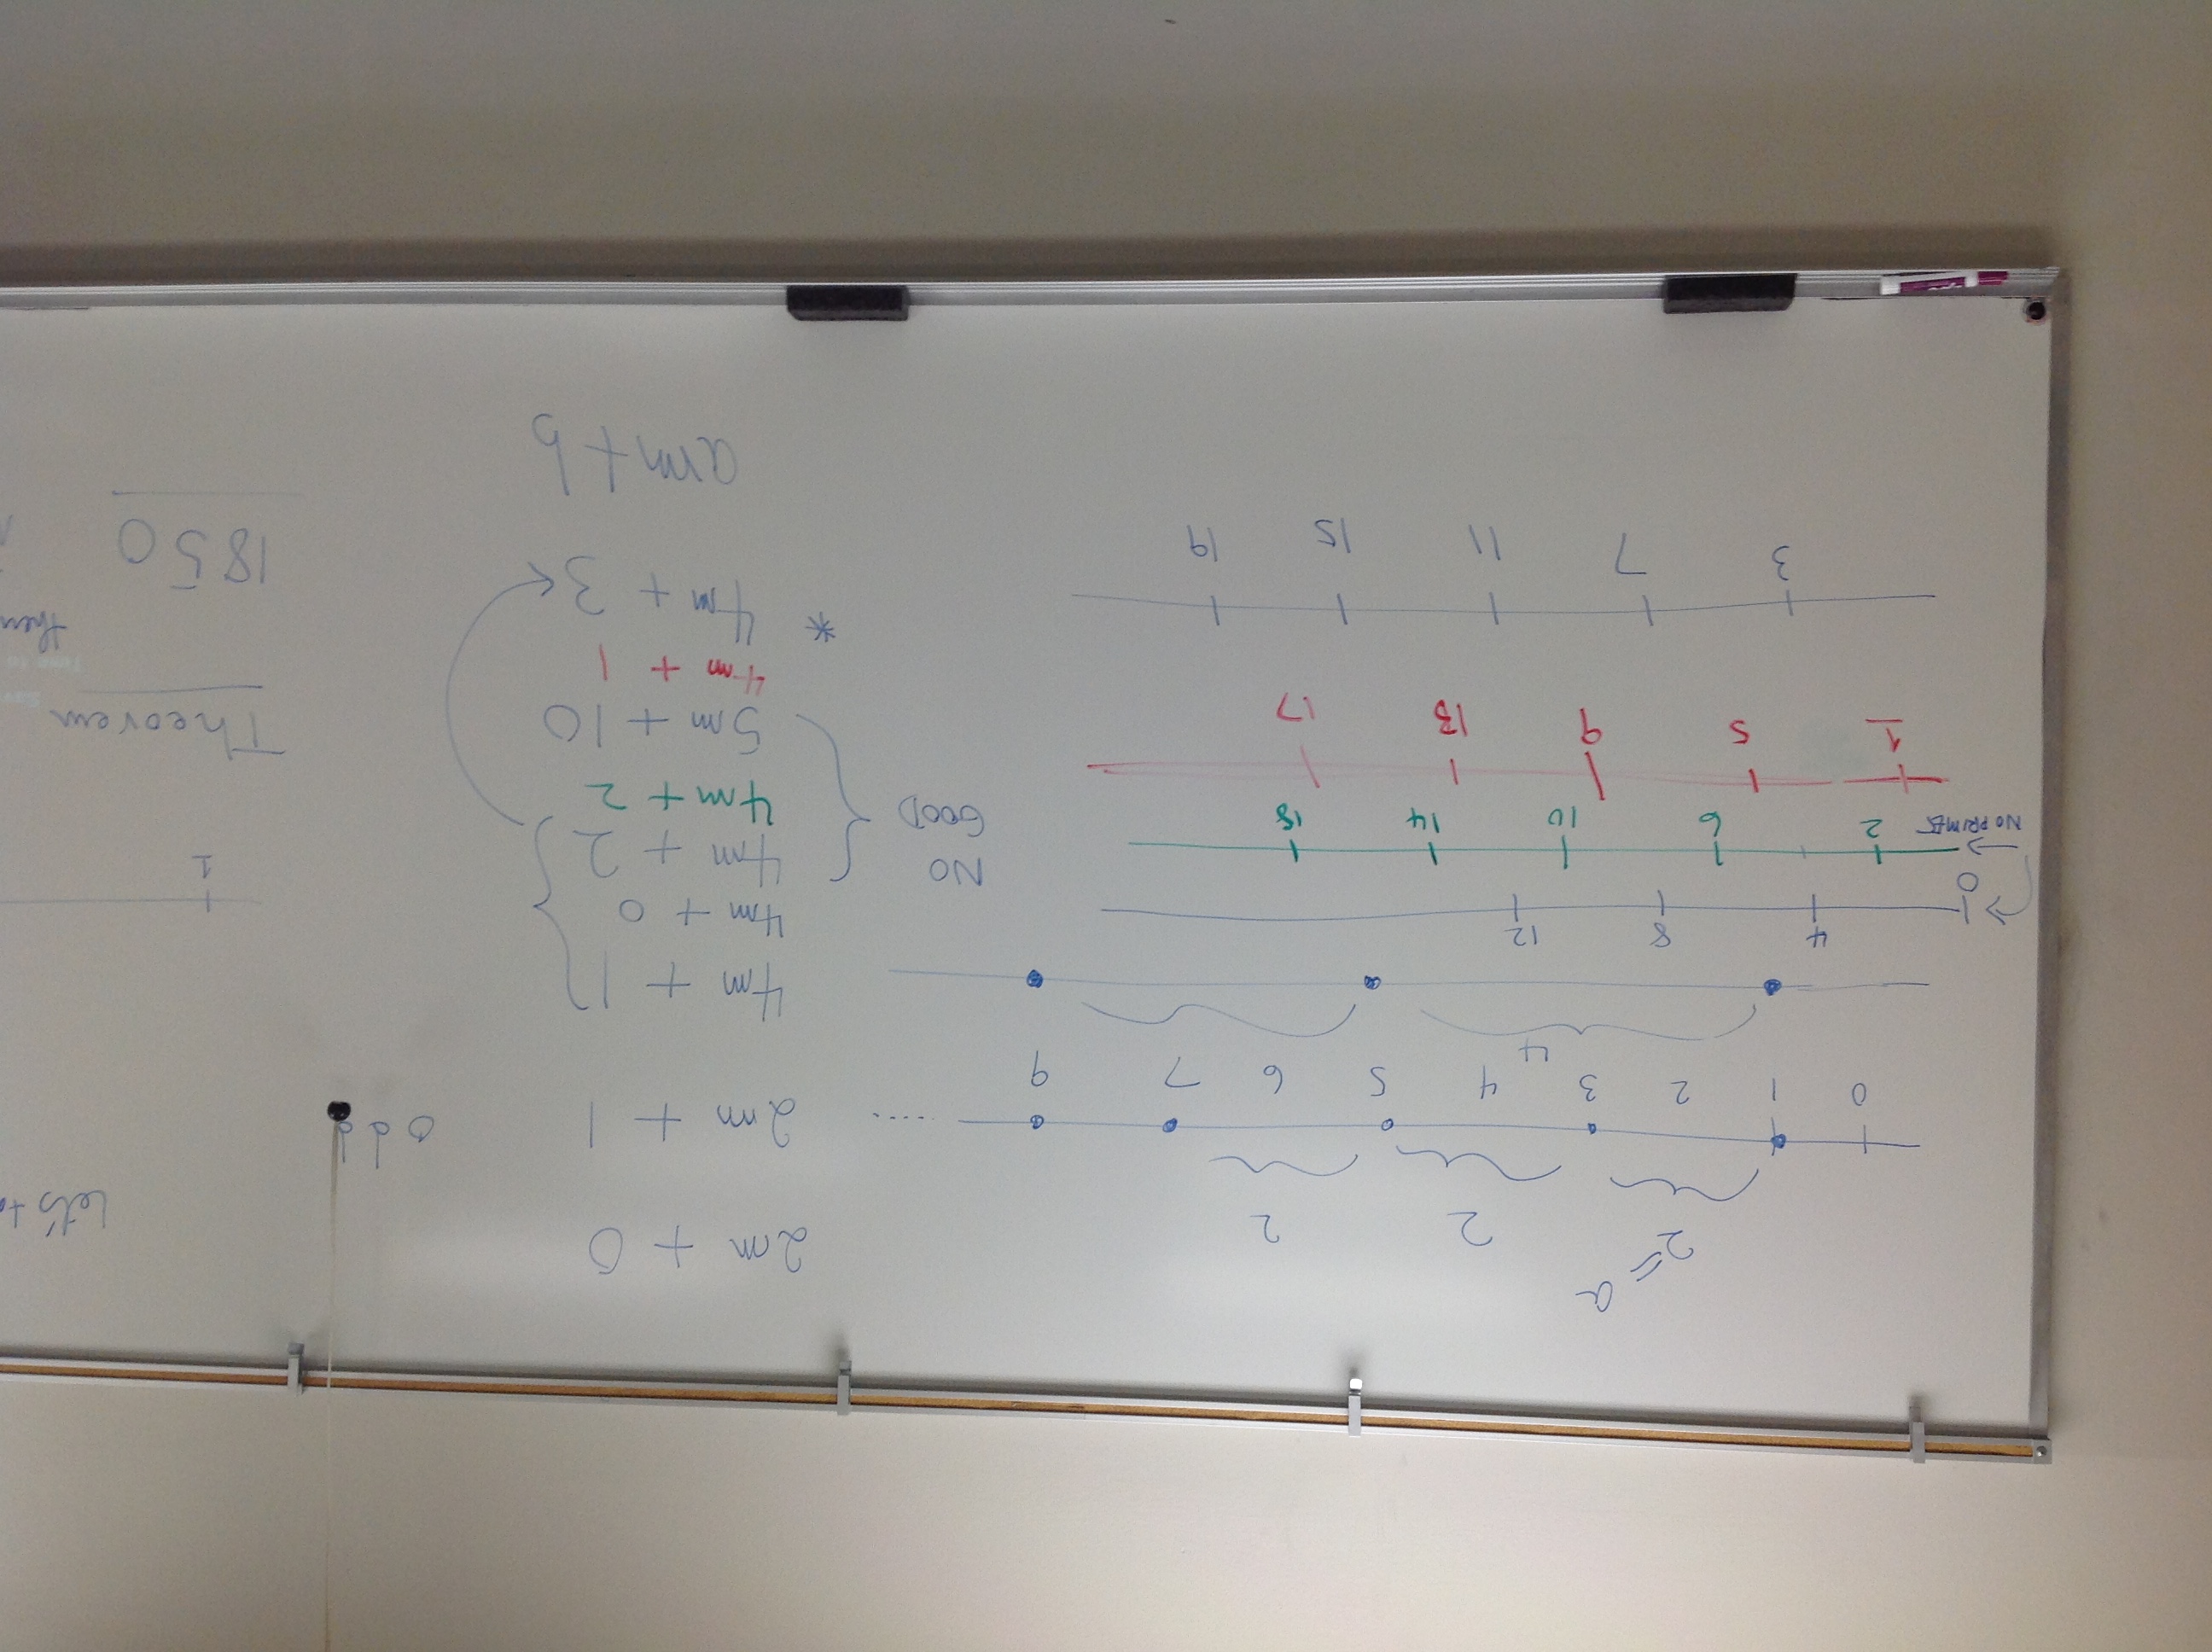 a
=
2 2 2
0 1 2 3 4 5 6 7 9 ....
4
4 8 12
0
NO PRIMES 2 6 10 14 18
1 5 9 13 17
3 7 11 15 19
2m + 0
2m + 1 odd
4m + 1
4m + 0
4m + 2
4m + 2
5m + 10
NO
GOOD
4m + 1
* 4m + 3
am + b
Let's
1
Theorem
then
1850